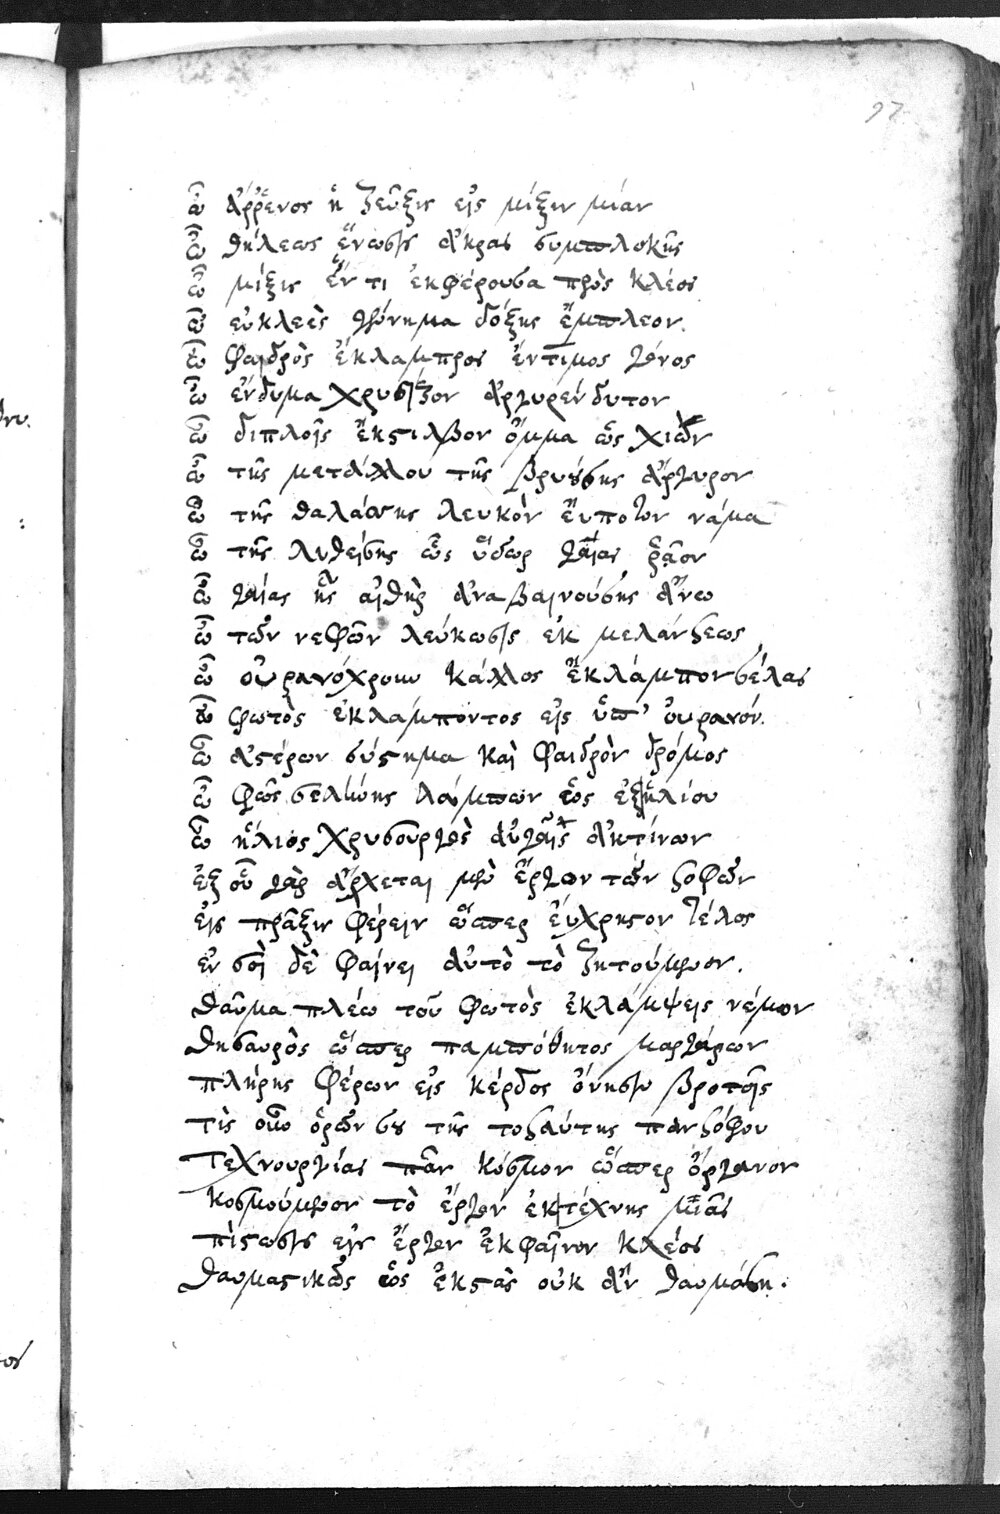 97
ὦ ἄῤῥενος ἡ ζεῦξις εἰς μίξιν μίαν
ὦ θήλεως ἕνωσις ἄκρας συμπλοκῆς
ὦ μίξις ἕν τι ἐκφέρουσα πρὸς κλέος
ὦ εὐκλεὲς γέννημα δόξης ἔμπλεον.
ὦ φαιδρὸς ἔκλαμπρος ἔντιμος γόνος
ὦ ἔνδυμα χρυσίζον ἀργυρένδυτον
ὦ διπλοῖς ἐκστίλβον ὄμμα ὡς χιὼν
ὦ τῆς μετάλλου τῆς βρυούσης ἄργυρον
ὦ τῆς θαλάσσης λευκὸν εὔποτον νάμα
ὦ τῆς λυθείσης ὡς ὕδωρ γαίας ῥᾶον
ὦ γαίας ἧς αἰθὴρ ἀναβαινούσης ἄνω
ὦ τῶν νεφῶν λεύκωσις ἐκ μελάνσεως
ὦ οὐρανόχροιον κάλλος ἐκλάμπον σέλας
ὦ φωτὸς ἐκλάμποντος εἰς ὑπ' οὐρανόν.
ὦ ἀστέρων σύστημα καὶ φαιδρὸν δρόμος
ὦ φῶς σελήνης λάμπων ὡς ἐξ ἡλίου
ὦ ἥλιος χρυσουργὸς αὐγαῖς ἀκτίνων
ἐξ οὗ γὰρ ἄρχεται μὲν ἔργον τῶν σοφῶν
εἰς πρᾶξιν φέρειν ὥσπερ εὔχρηστον τέλος
ἐν σοὶ δὲ φαίνει αὐτὸ τὸ ζητούμενον.
θαῦμα πλέω τοῦ φωτὸς ἐκλάμψεις νέμων
θησαυρὸς ὥσπερ παμπόθητος μαργάρων
πλήρης φέρων εἰς κέρδος ὄνησιν βροτοῖς
τίς οὖν ὁρῶν σου τῆς τοσαύτης πανσόφου
τεχνουργίας πᾶν κόσμον ὥσπερ ὄργανον
κοσμούμενον τὸ ἔργον ἐκ τέχνης μιᾶς
πίστωσις εἰς ἔργον ἐκφαῖνον κλέος
θαυμαστικῶς ὡς ἐκστὰς οὐκ ἂν θαυμάση.